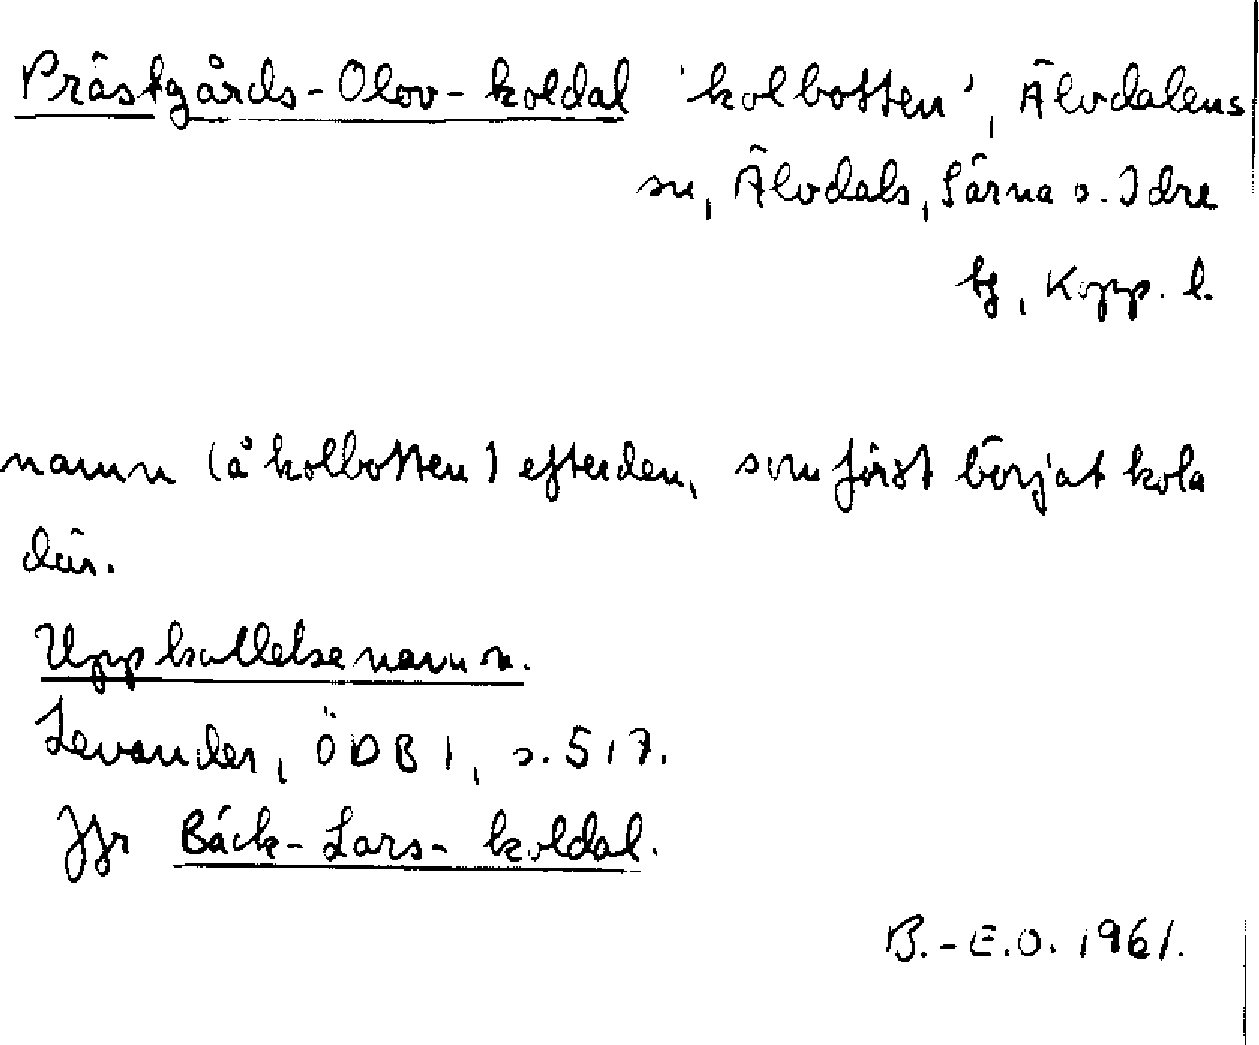 Prästgårds-Olov-koldal 'kolbotten', Älvdalens
sn, Älvdals, Särna o. Idre
tg, Kopp. l.
namn (å kolbotten) efter den, som först börjat kola
där.
Uppkallelsenamn.
Levander, ÖDB 1, s. 517.
Jfr Bäck-Lars-koldal.
B.-E.O. 1961.